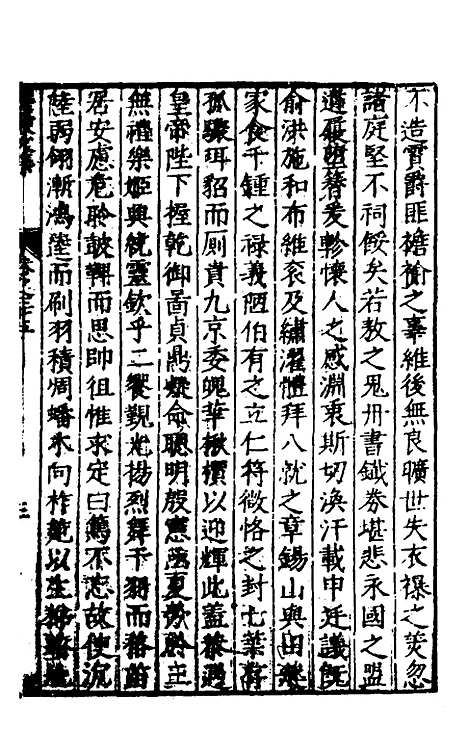 不造霄爵匪襜褕之辜維後無良曠世失衣裸之羙忽
諸庭堅不祠餒矣若敖之鬼丹書鐵券堪悲永國之盟
遺履墮簪爰軫懷人之感淵衷斯切渙汗載申廷議旣
俞洪施和布維衮及繡濯體拜八就之章錫山與田
家食千鍾之禄義陋伯有之立仁符徵恪之封七葉
孤驟珥貂而厠貴九京委魄華楸檟以迎輝此蓋
皇帝陛下握乾御啚貞鼎凝命聰明殷憲區夏欽
無禮樂姬典統靈欽乎二饗覲光揚烈舞干羽而格苗
居安慮危聆鼓鞞而思帥徂惟求定曰篤不忘故使沉
陸弱翎漸鴻逵而刷羽積凋蟠木向柞蓰以生
三